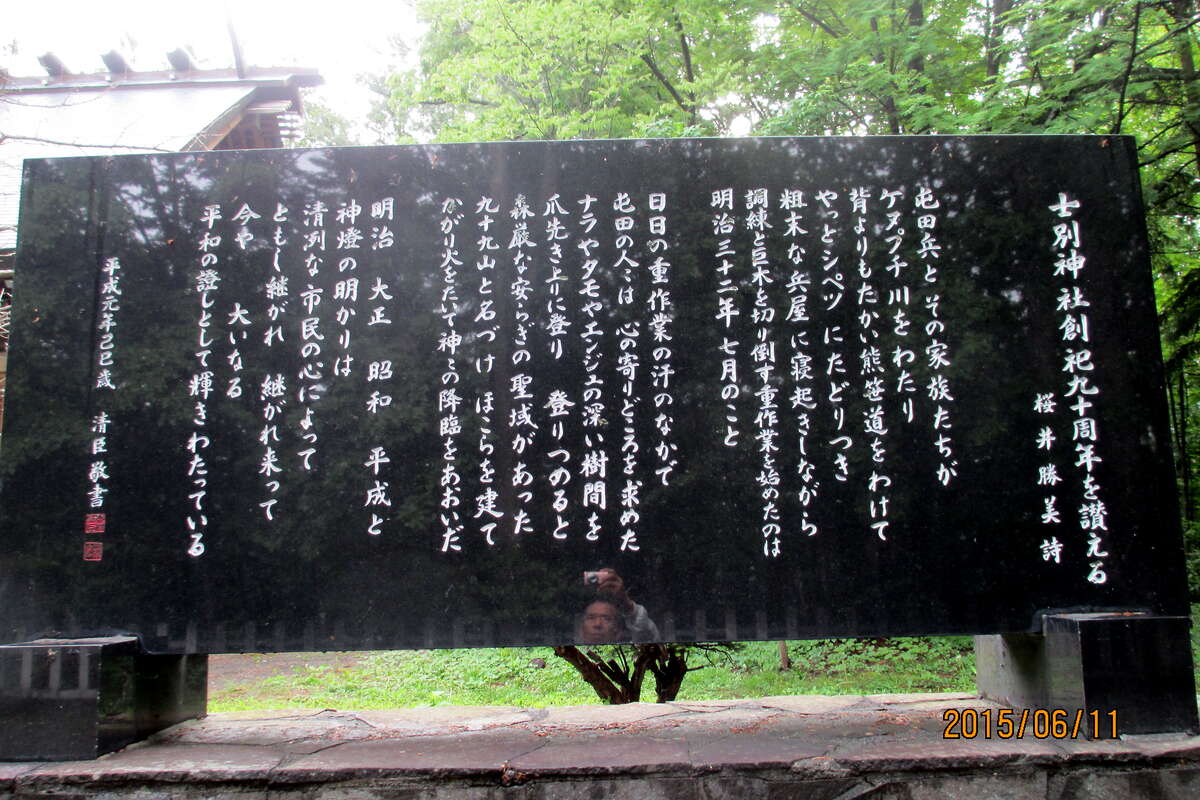 士別神社創祀九十周年を讃える
桜井勝美 詩
屯田兵と その家族たちが
ケヌプチ川をわたり
背よりもたかい熊笹道をわけて
やっとシペツ にたどりつき
粗末な兵屋に寝起きしながら
調練と巨木を切り倒す重作業を始めたのは
明治三十二年 七月のこと
日日の重作業の汗のなかで
屯田の人々は 心の寄りどころを求めた
ナラやタモやエンジュの深い樹間を
爪先き上りに登り 登りつめると
森厳な安らぎの聖域があった
九十九山と名づけ ほこらを建て
かがり火をたいて神々の降臨をあおいだ
明治 大正 昭和 平成と
神燈の明かりは
清冽な市民の心によって
ともし継がれ 継がれ来って
今や 大いなる
平和の證しとして輝きわたっている
平成元年己巳歳 清臣敬書
2015/06/11